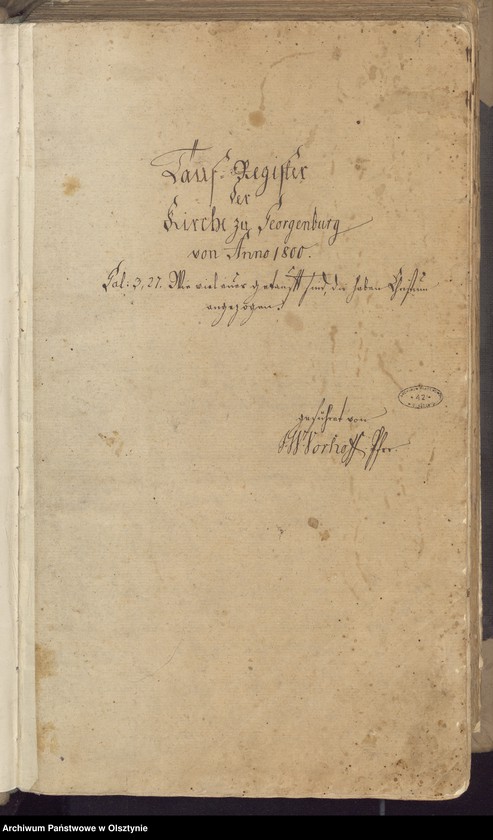 Tauf-Register
der
Kirche zu Georgenburg
von Anno 1800.
Gal: 3, 27. Wie viel euer getauft sind, die haben Christum
angezogen.
geführet von
Worhoff, Pfrr.
42
Archiwum Państwowe w Olsztynie